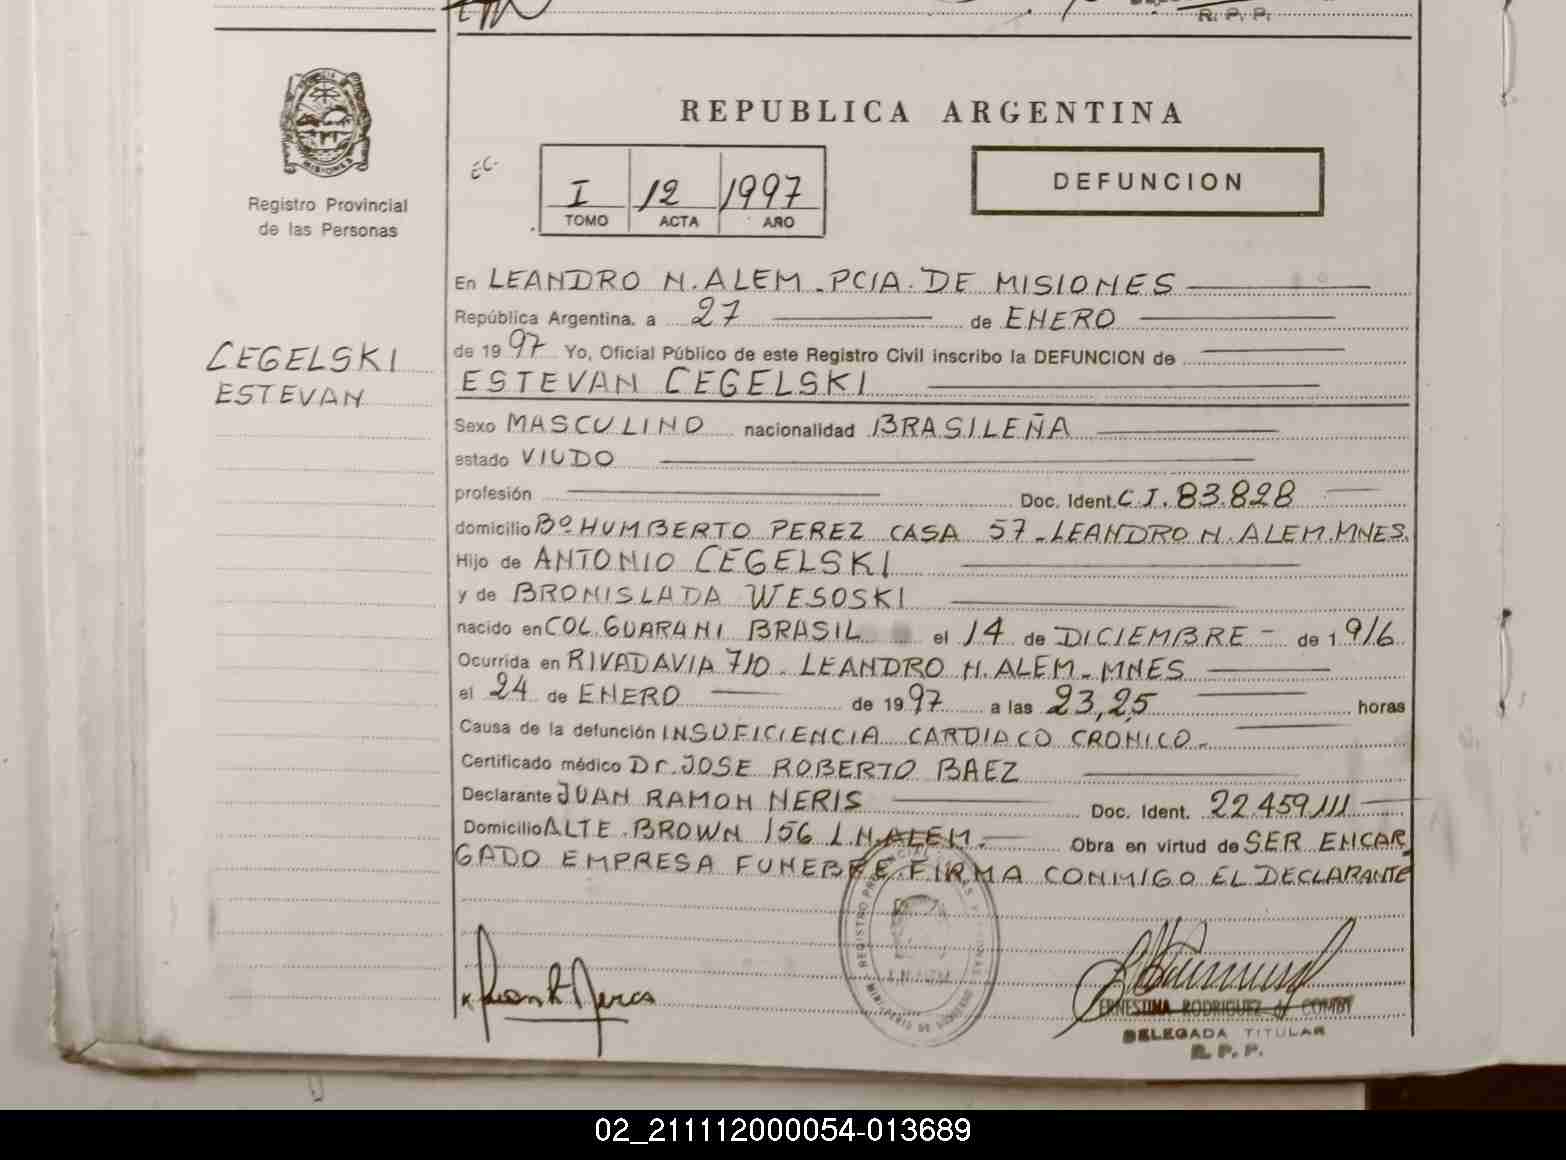 R. P. P.
REPUBLICA ARGENTINA
MISIONES
Registro Provincial
de las Personas
I 12 1997
TOMO ACTA AÑO
DEFUNCION
CEGELSKI
ESTEVAN
En LEANDRO N. ALEM - PCIA. DE MISIONES
República Argentina, a 27 de ENERO
de 1997 Yo, Oficial Público de este Registro Civil inscribo la DEFUNCION de
ESTEVAN CEGELSKI
Sexo MASCULINO nacionalidad BRASILEÑA
estado VIUDO
profesión Doc. Ident. C.I. 83.828
domicilio Bº HUMBERTO PEREZ CASA 57 - LEANDRO N. ALEM. MNES.
Hijo de ANTONIO CEGELSKI
y de BRONISLADA WESOSKI
nacido en COL. GUARANI BRASIL el 14 de DICIEMBRE - de 1.916
Ocurrida en RIVADAVIA 710 - LEANDRO N. ALEM - MNES
el 24 de ENERO de 1997 a las 23,25 horas
Causa de la defunción INSUFICIENCIA CARDIACO CRONICO.-
Certificado médico Dr. JOSE ROBERTO BAEZ
Declarante JUAN RAMON NERIS Doc. Ident. 22.459.111
Domicilio ALTE. BROWN 156 L.N. ALEM.- Obra en virtud de SER ENCAR
GADO EMPRESA FUNEBRE. FIRMA CONMIGO EL DECLARANTE
ERNESTINA RODRIGUEZ de COMBY
DELEGADA TITULAR
R. P. P.
02_211112000054-013689